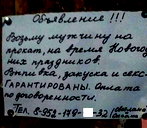 Объявление!!!
Возьму мужчину на
прокат, на время Новогод
них праздников.
Выпивка, закуска и секс-
ГАРАНТИРОВАНЫ. Оплата
по договоренности.
Тел. 8-952-179- -32